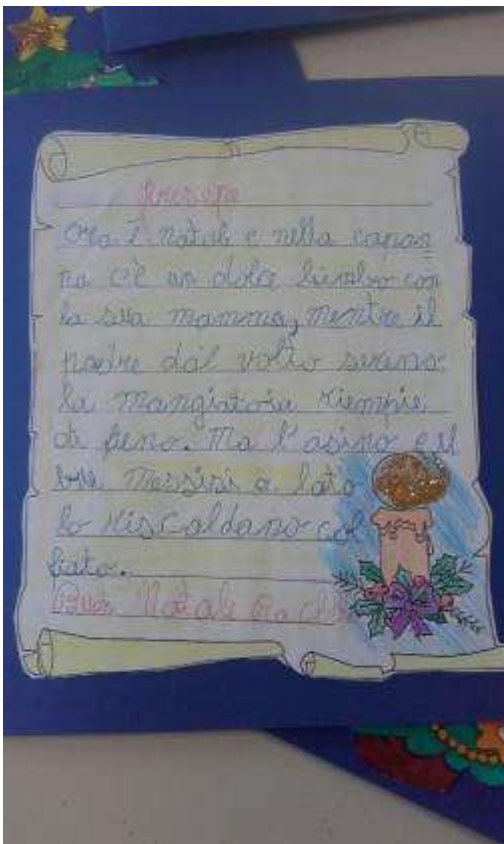 Presepe
Ora è natale e nella capan
na c'è un dolce bimbo con
la sua mamma, mentre il
padre dal volto sereno
la mangiatoia riempie
di fieno. Ma l'asino e il
bue messisi a lato
lo riscaldano col
fiato.
Buon Natale